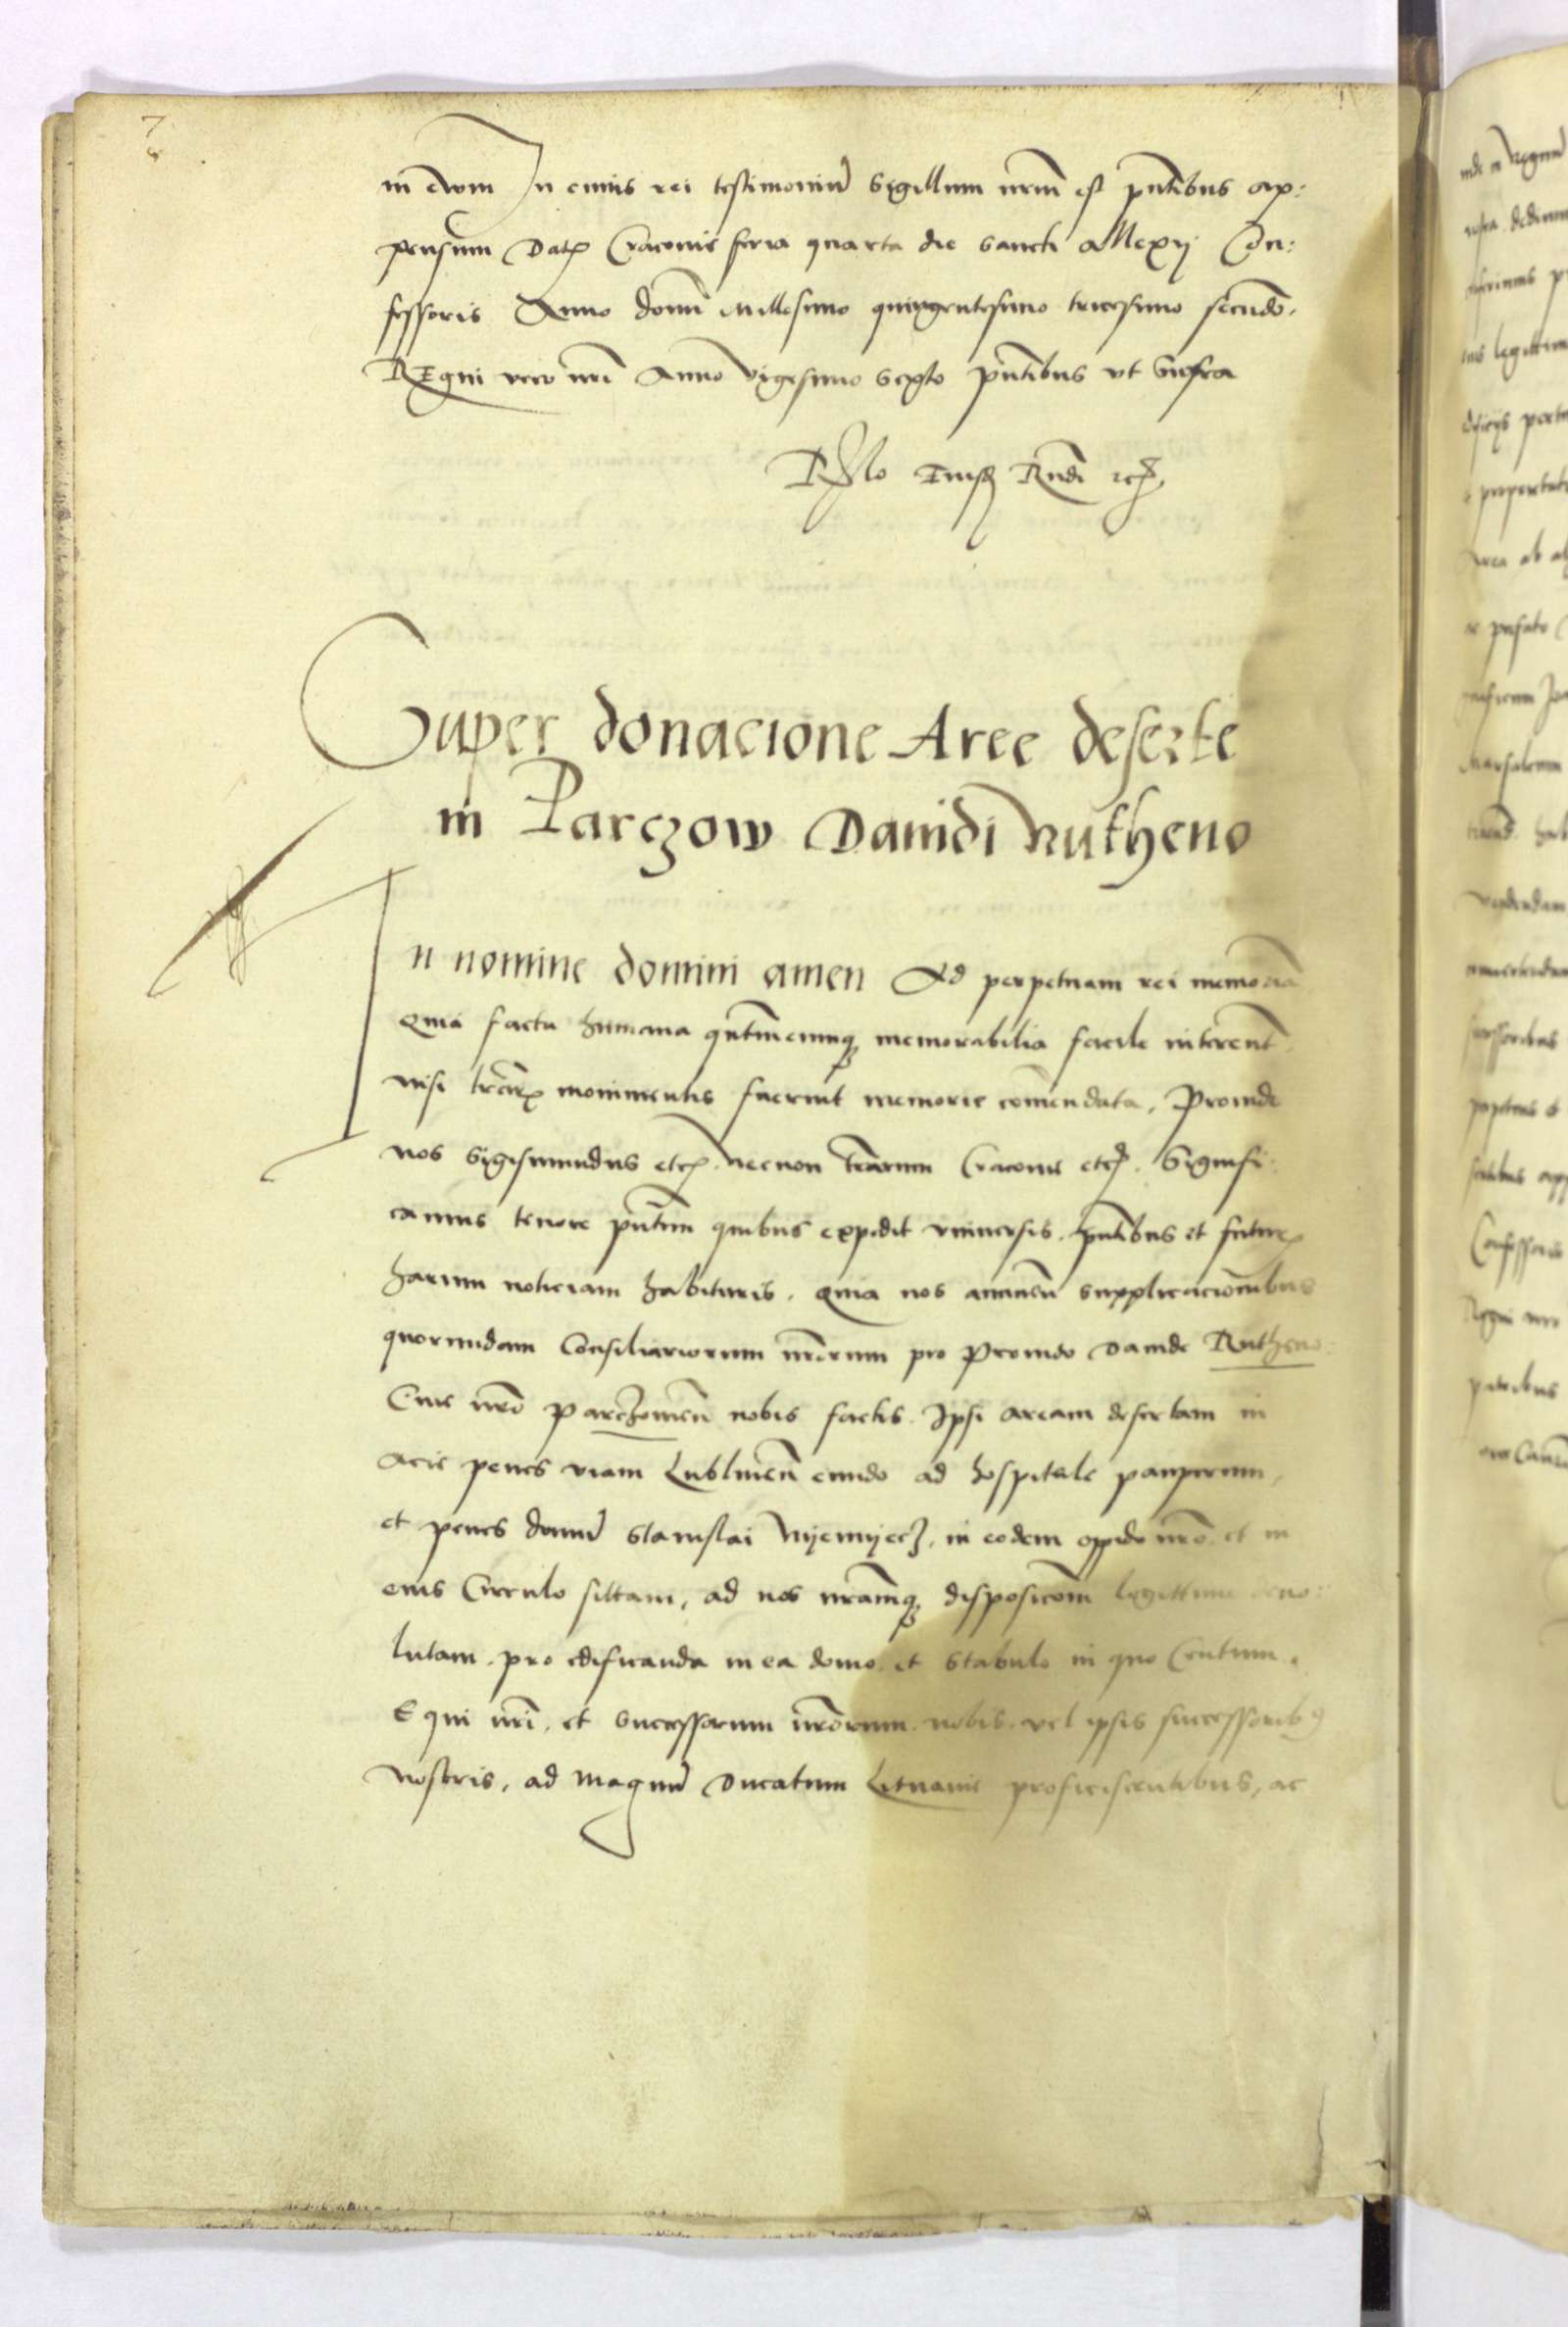 7
in ewm In cuius rei testimoniu sigillum nrm est pntibus ap:
pensum Dat Cracovie feria quarta die sancti allexij Con:
fessoris Anno domi millesimo quingentesimo tricesimo secundo.
REgni vero nri Anno vigesimo sexto pntibus ut supra
Rlo Eiusd Rndi etc.
Super donacione Aree deserte
in Parczow Dauidi Rutheno
In nomine domini amen Ad perpetuam rei memoria
Quia facta humana qntmcunq memorabilia facile interent
nisi lrar monimentis fuerint memorie comendata. Proinde
nos Sigismundus etc. necnon terrarum Cracovie etc. Signifi:
camus tenore pntm quibus expedit vniuersis. pntibus et futur
harum noticiam habituris. Quia nos annuen supplicacionibus
quorundam Consiliariorum nrorum pro Prouido Dauide Rutheno
Ciue nro Parczouien nobis factis. Ipsi aream desertam in
acie penes viam Lublinen eundo ad hospitale pauperum,
et penes domu Stanislai Nyemyecz, in eodem oppido nro et in
eius Circulo sittam, ad nos nramq disposicom legittime deuo:
lutam. pro edificanda in ea domo et stabulo in quo Centum.
Equi nri. et successorum nrorum. nobis. vel ipsis successorib
nostris, ad magnu Ducatum Lituanie proficiscentibus, ac